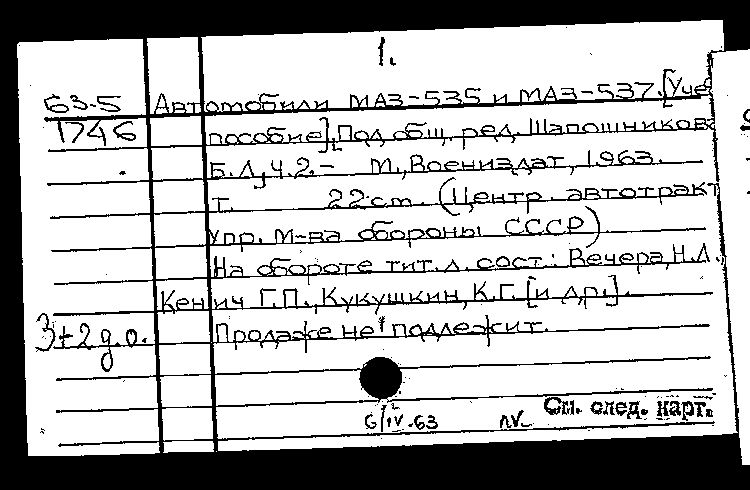 1.
63-5 Автомобили МАЗ-535 и МАЗ-537. [Учеб
1746 пособие]. Под общ. ред. Шапошникова
Б.Д. Ч.2. - М., Воениздат, 1963.
т. 22 cm. (Центр. автотракт
упр. М-ва обороны СССР)
На обороте тит. л. сост.: Вечера, Н.Д.,
Кенич Г.П., Кукушкин, К.Г. [и др.].
3+2 д.о. Продаже не подлежит.
6/IV-63
См. след. карт.